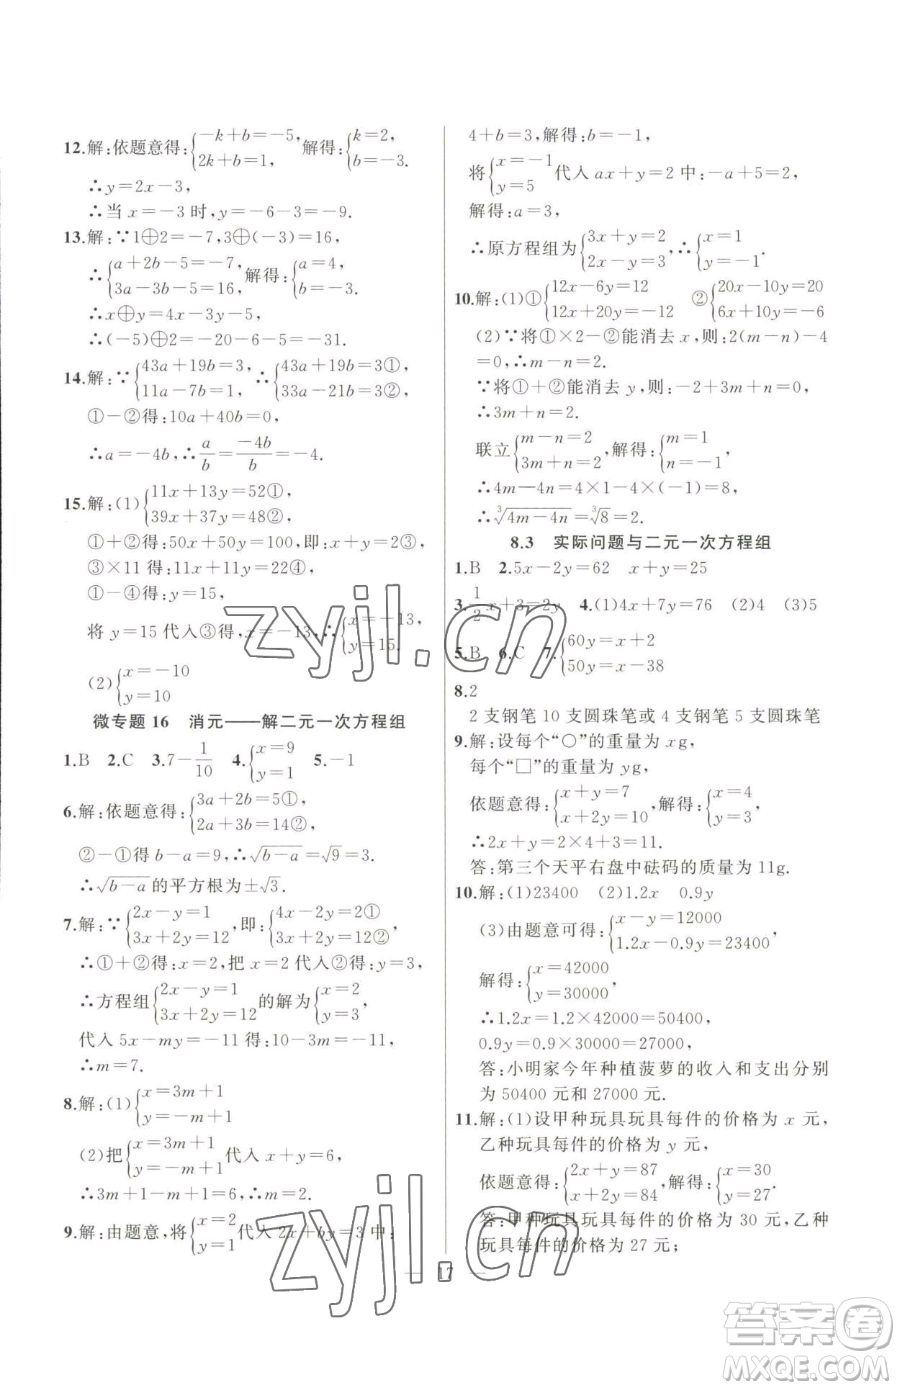 12.解:依题意得:{-k+b=-5, 2k+b=1, 解得:{k=2, b=-3.
∴y=2x-3,
∴当 x=-3 时,y=-6-3=-9.
13.解:∵1⊕2=-7,3⊕(-3)=16,
∴{a+2b-5=-7, 3a-3b-5=16, 解得:{a=4, b=-3.
∴x⊕y=4x-3y-5,
∴(-5)⊕2=-20-6-5=-31.
14.解:∵{43a+19b=3, 11a-7b=1, ∴{43a+19b=3① 33a-21b=3②,
①-②得:10a+40b=0,
∴a=-4b,∴a/b=-4b/b=-4.
15.解:(1){11x+13y=52①, 39x+37y=48②,
①+②得:50x+50y=100,即:x+y=2③,
③×11 得:11x+11y=22④
①-④得:2y=30,∴y=15,
将 y=15 代入③得,x=-13,∴{x=-13, y=15.
(2){x=-10 y=10
微专题 16 消元——解二元一次方程组
1.B 2.C 3.7 -1/10 4.{x=9 y=1 5.-1
6.解:依题意得:{3a+2b=5①, 2a+3b=14②,
②-①得b-a=9,∴√(b-a)=√9=3.
∴√(b-a)的平方根为±√3.
7.解:∵{2x-y=1 3x+2y=12,即:{4x-2y=2① 3x+2y=12②
∴①+②得:x=2,把 x=2 代入②得:y=3,
∴方程组{2x-y=1 3x+2y=12 的解为{x=2 y=3,
代入 5x-my=-11 得:10-3m=-11,
∴m=7.
8.解:(1){x=3m+1 y=-m+1
(2)把{x=3m+1 y=-m+1 代入 x+y=6,
∴3m+1-m+1=6,∴m=2.
9.解:由题意,将{x=2 y=1 代入 2x+by=3 中:
4+b=3,解得:b=-1,
将{x=-1 y=5 代入 ax+y=2 中:-a+5=2,
解得:a=3,
∴原方程组为{3x+y=2 2x-y=3,∴{x=1 y=-1.
10.解:(1)①{12x-6y=12 12x+20y=-12 ②{20x-10y=20 6x+10y=-6
(2)∵将①×2-②能消去 x,则:2(m-n)-4
=0,∴m-n=2.
∵将①+②能消去 y,则:-2+3m+n=0,
∴3m+n=2.
联立{m-n=2 3m+n=2,解得:{m=1 n=-1,
∴4m-4n=4×1-4×(-1)=8,
∴∛(4m-4n)=∛8=2.
8.3 实际问题与二元一次方程组
1.B 2.5x-2y=62 x+y=25
3.1/2x+3=2y 4.(1)4x+7y=76 (2)4 (3)5
5.B 6.C 7.{60y=x+2 50y=x-38
8.2
2 支钢笔 10 支圆珠笔或 4 支钢笔 5 支圆珠笔
9.解:设每个“○”的重量为 xg,
每个“□”的重量为 yg,
依题意得:{x+y=7 x+2y=10,解得:{x=4 y=3,
∴2x+y=2×4+3=11.
答:第三个天平右盘中砝码的质量为 11g.
10.解:(1)23400 (2)1.2x 0.9y
(3)由题意可得:{x-y=12000 1.2x-0.9y=23400,
解得:{x=42000 y=30000,
∴1.2x=1.2×42000=50400,
0.9y=0.9×30000=27000,
答:小明家今年种植菠萝的收入和支出分别
为 50400 元和 27000 元.
11.解:(1)设甲种玩具玩具每件的价格为 x 元,
乙种玩具每件的价格为 y 元,
依题意得:{2x+y=87 x+2y=84,解得:{x=30 y=27.
答:甲种玩具玩具每件的价格为 30 元,乙种
玩具每件的价格为 27 元;
17
zyjl.cn
zyjl.cn
答案圈
MXQE.COM